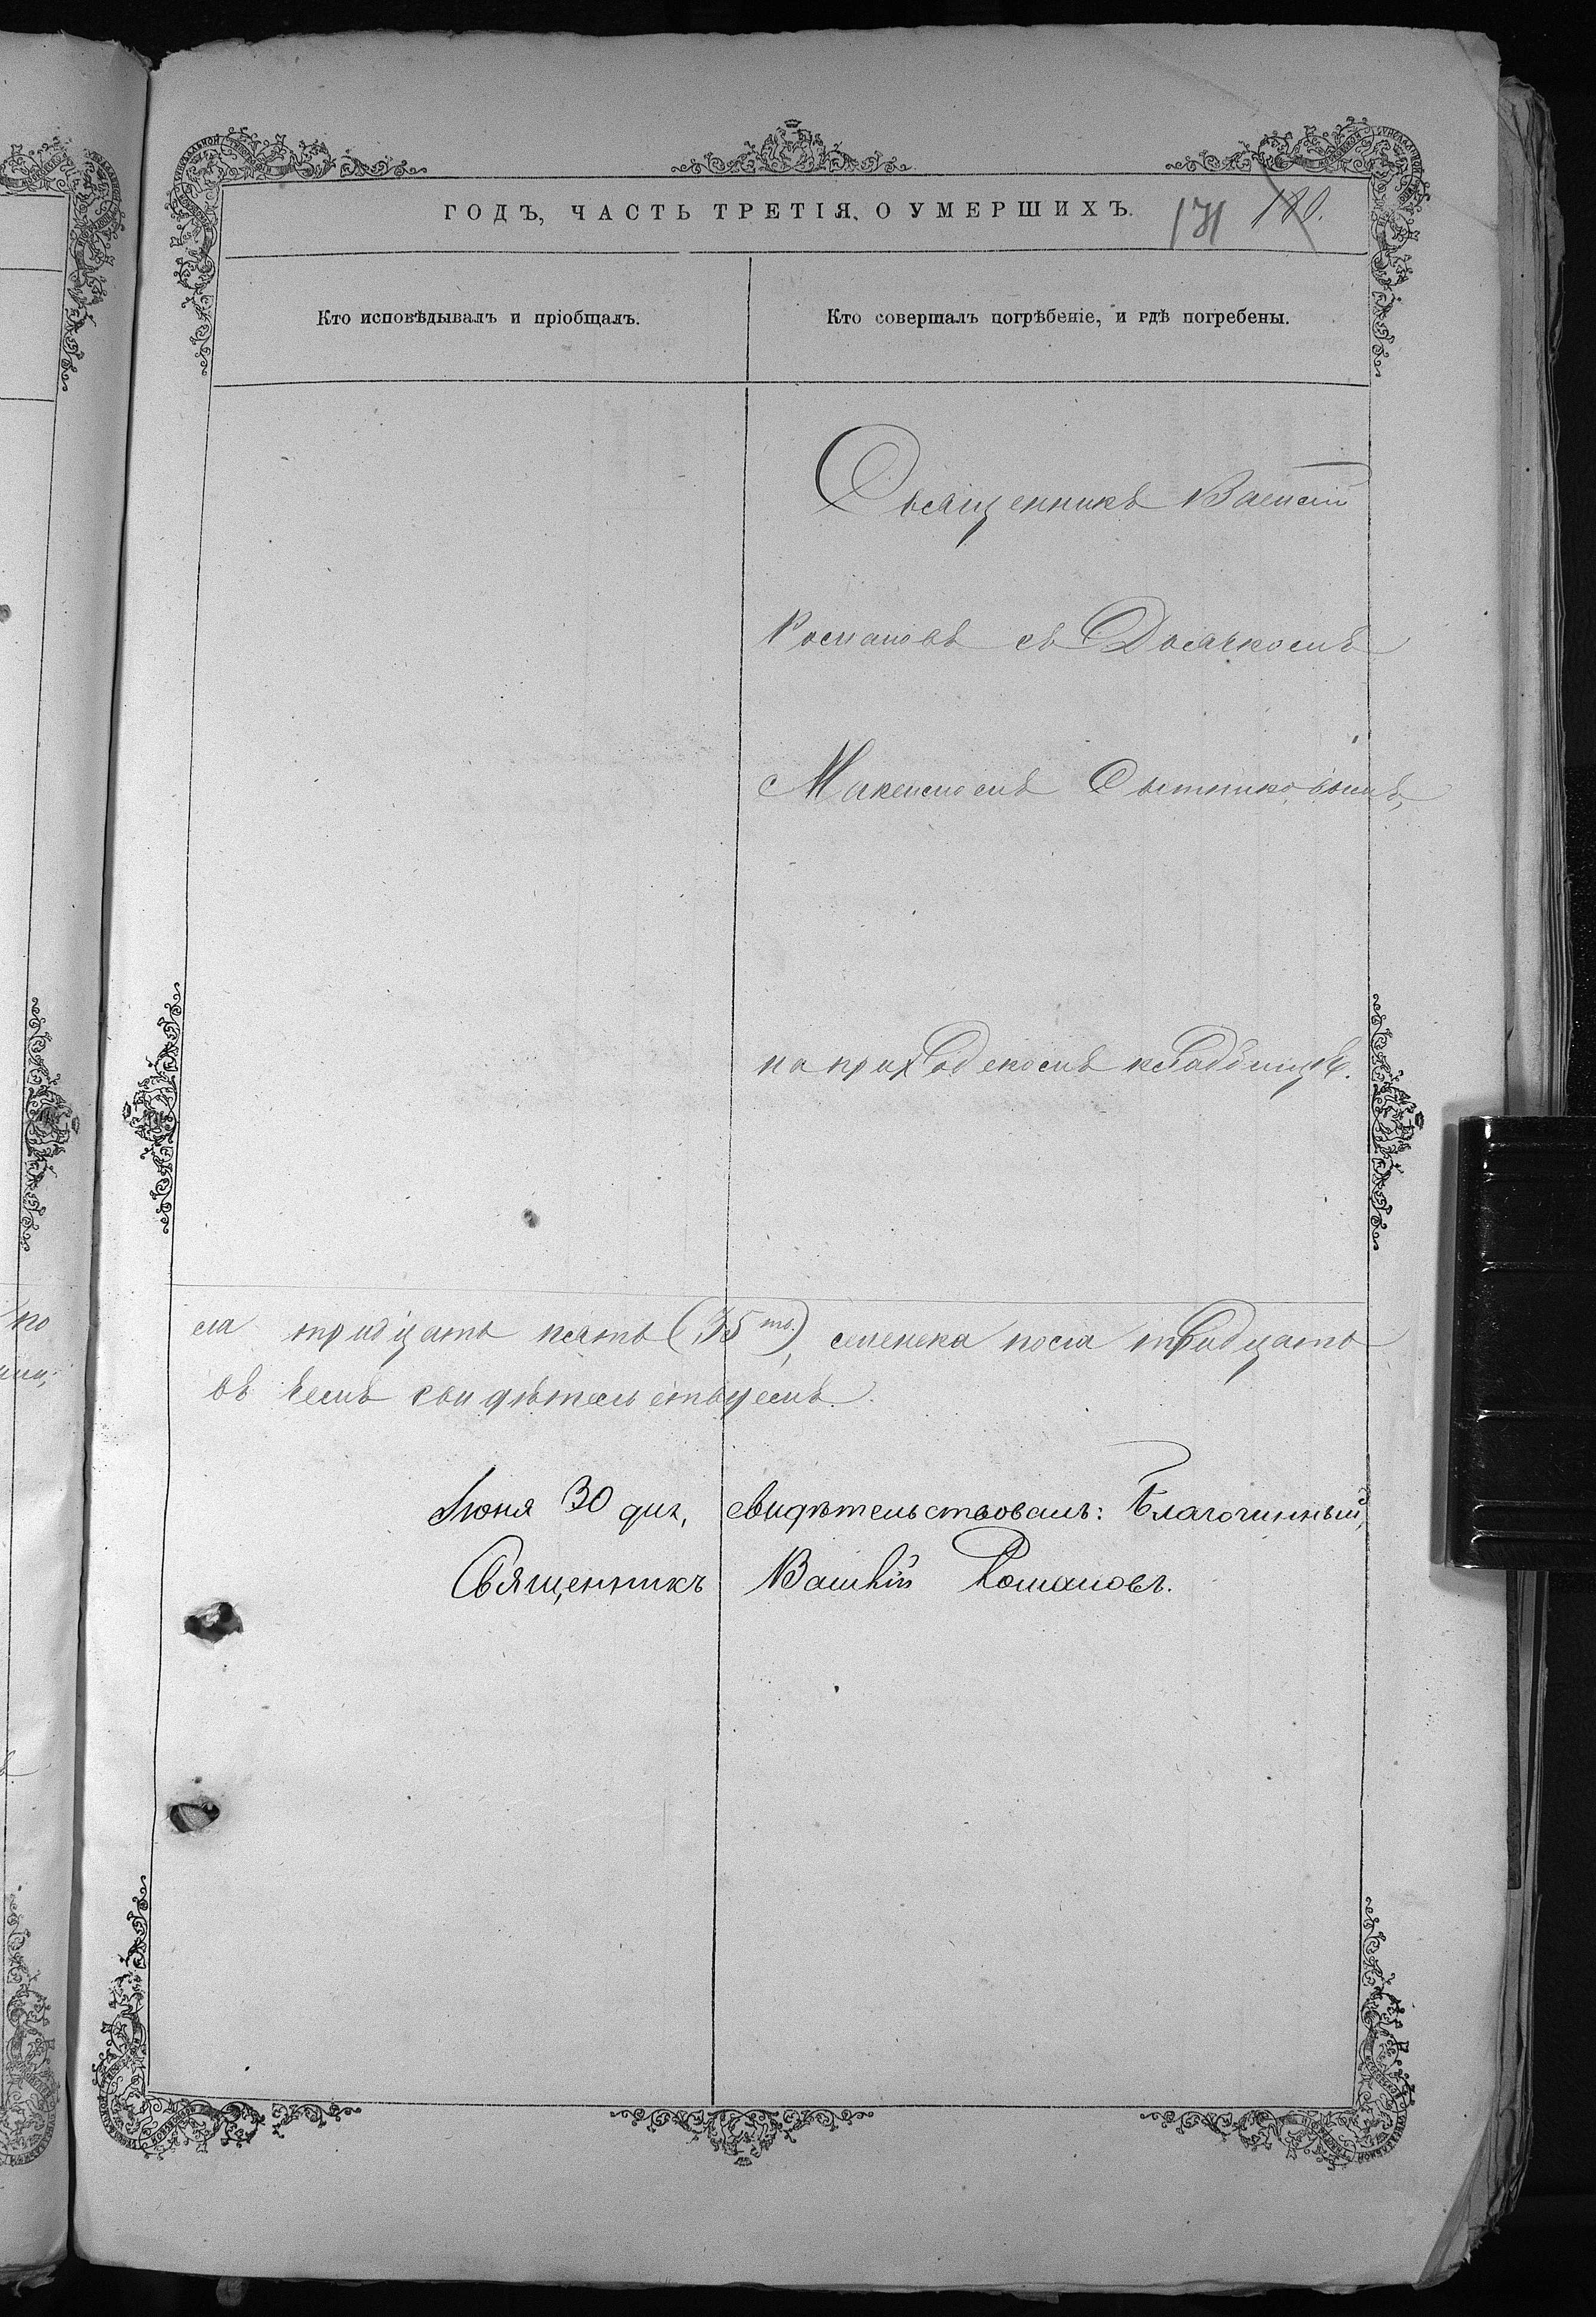 ГОДЪ, ЧАСТЬ ТРЕТІЯ, О УМЕРШИХЪ.
171 180.
Кто исповѣдывалъ и пріобщалъ.
Кто совершалъ погрѣбеніе, и гдѣ погребены.
Священникъ Василій
Романовъ съ Дьячкомъ
Максимомъ Сытниковымъ,
на приходскомъ кладбищѣ.
ла тридцать пять (35ть), женска пола тридцать
въ чемъ свидѣтельствуемъ.
Іюня 30 дня, свидѣтельствовалъ: Благочинный,
Священникъ Василій Романовъ.